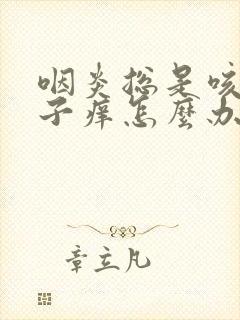 咽炎总是咳
子痒怎麼办
章立凡